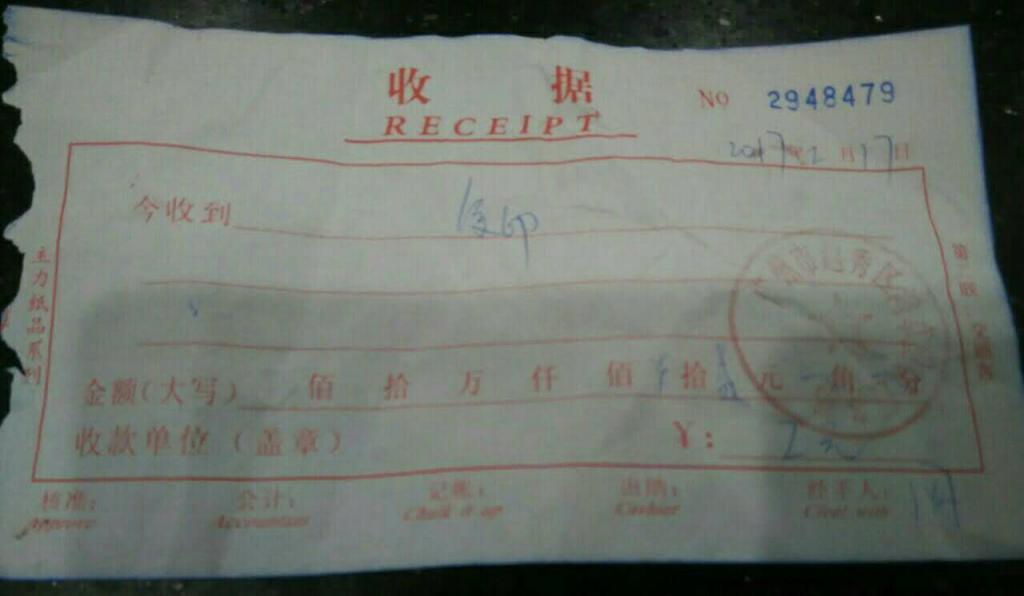 收 据
NO 2948479
RECEIPT
2017年2月17日
今收到 复印
主力纸品系列
第二联 交顾客
广州市越秀区
金额(大写) 佰 拾 万 仟 佰 拾 元 角 分
收款单位(盖章) ¥:
核准: 会计: 记帐: 出纳: 经手人:
Approve Accountant Chalk it up Cashier Clent with